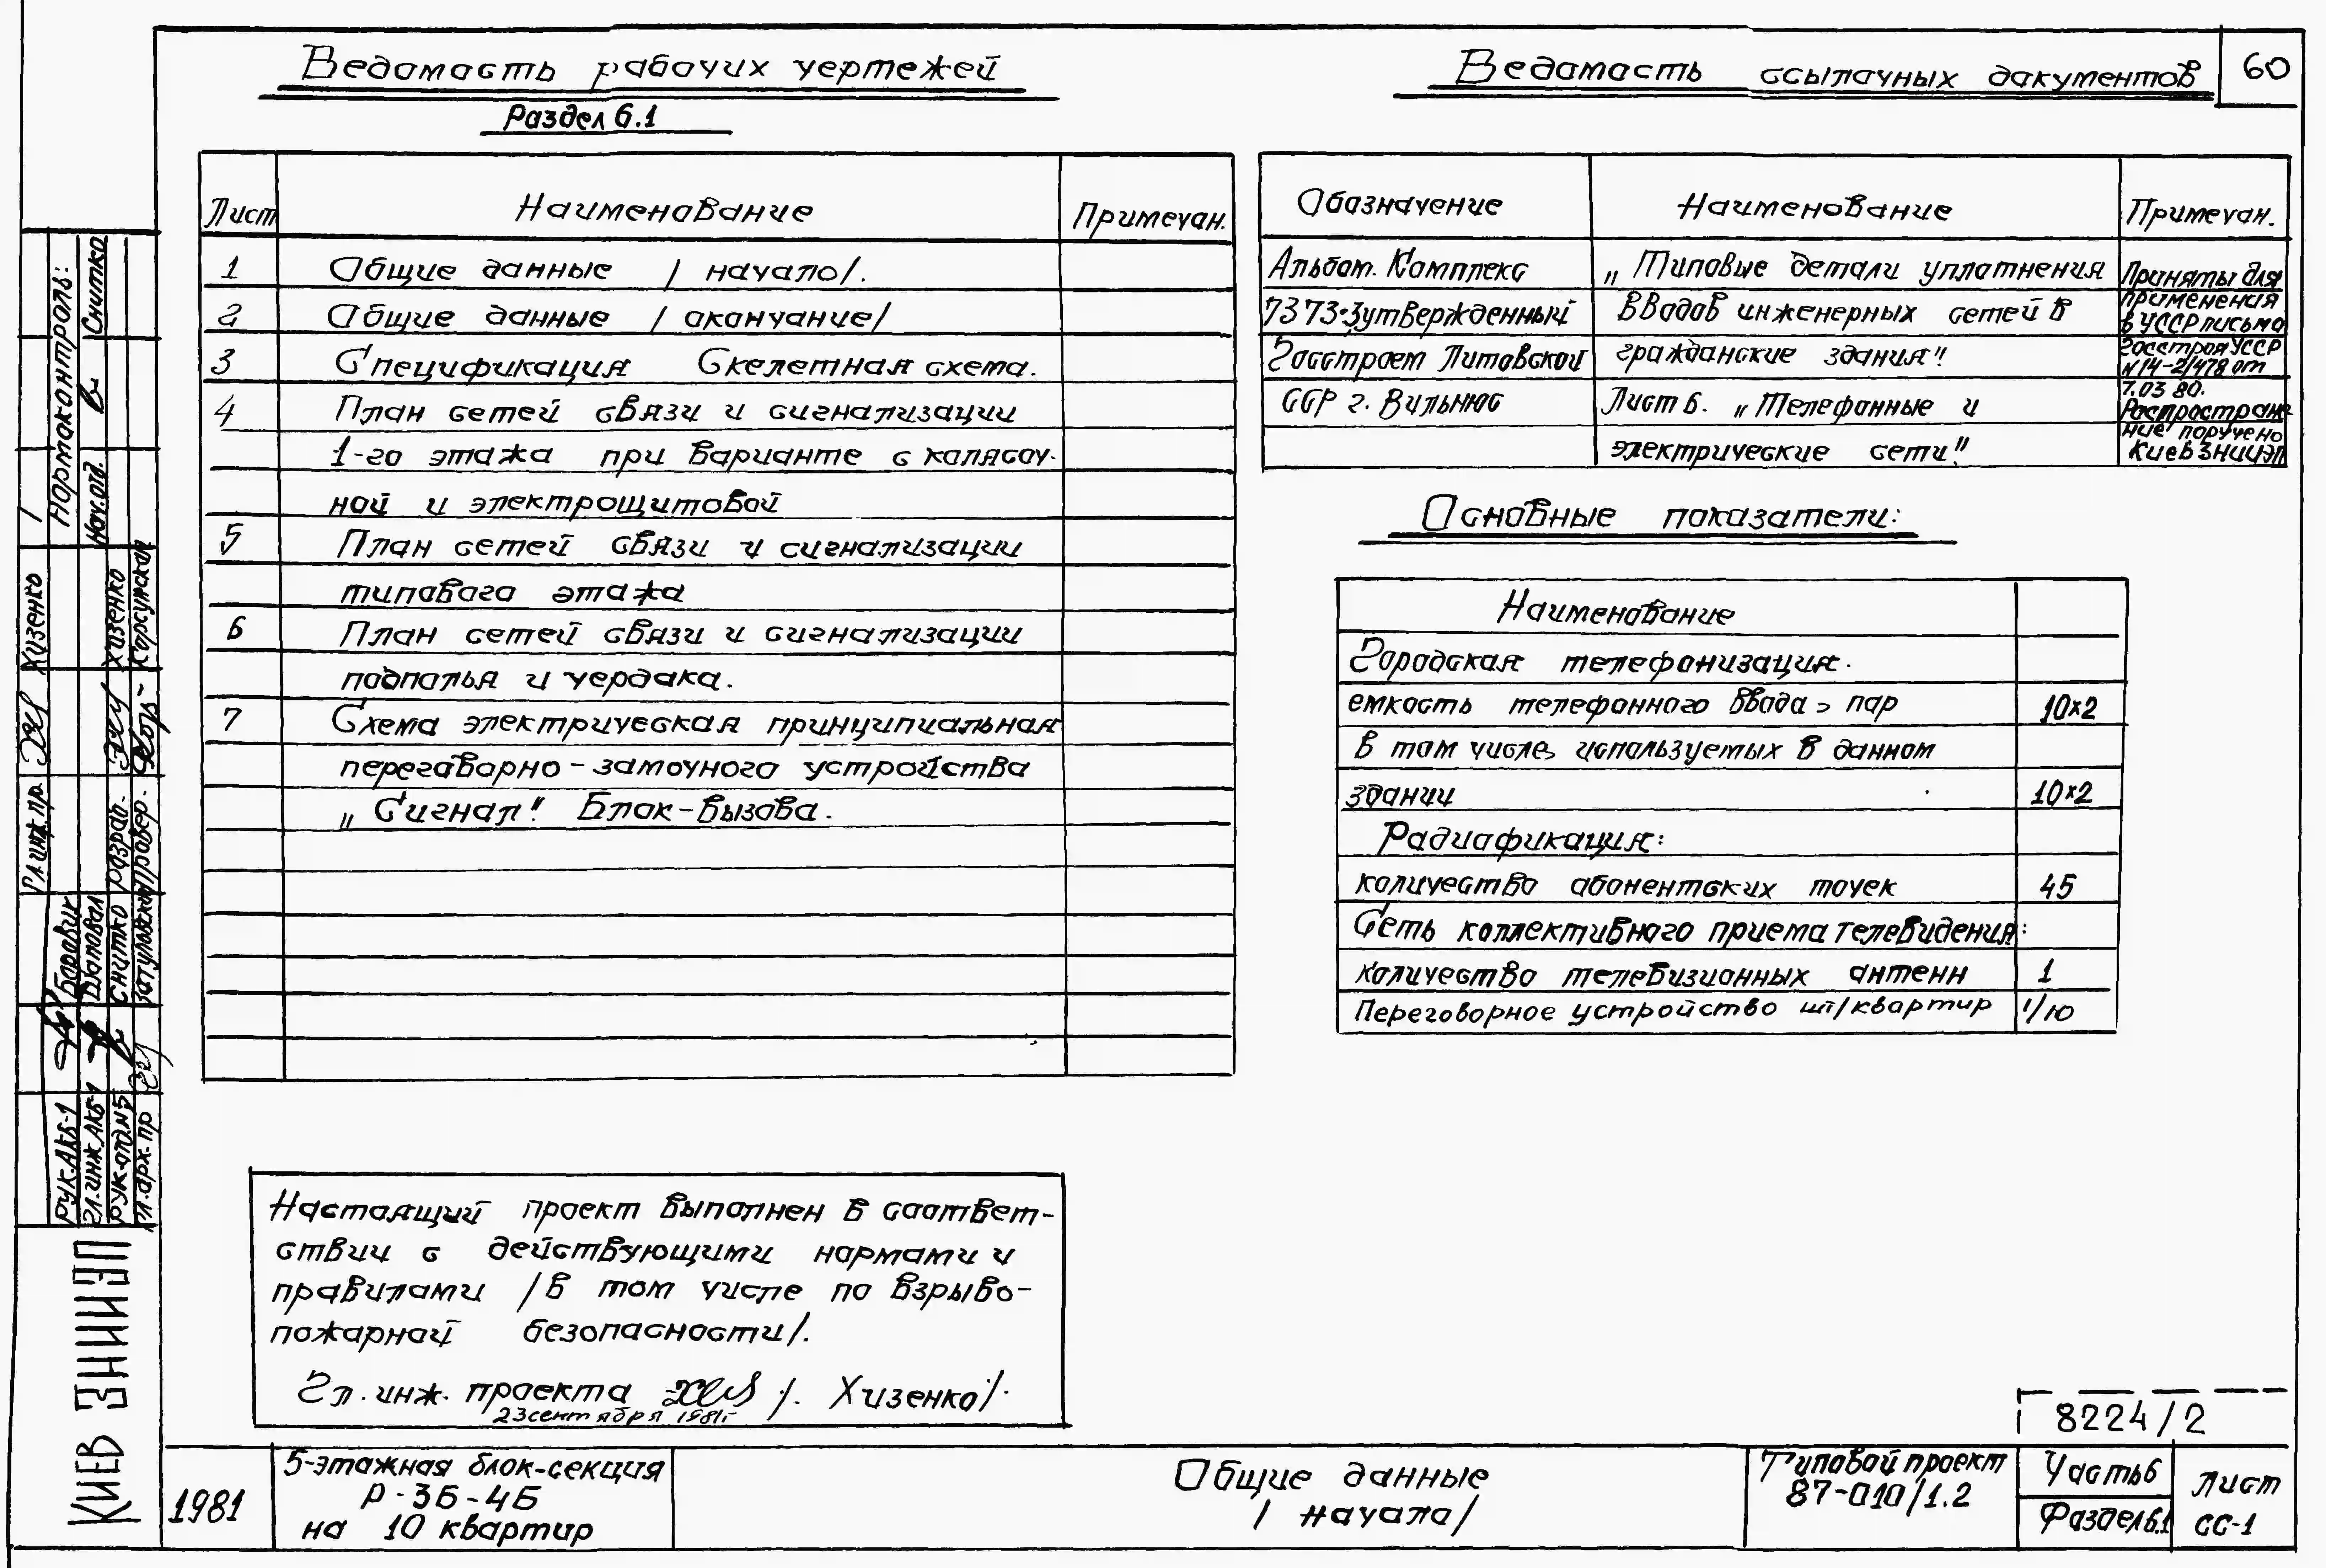 Ведомость рабочих чертежей
Раздел 6.1
Лист Наименование Примечан.
1 Общие данные /начало/.
2 Общие данные /окончание/
3 Спецификация Скелетная схема.
4 План сетей связи и сигнализации
1-го этажа при варианте с колясоч-
ной и электрощитовой
5 План сетей связи и сигнализации
типового этажа
6 План сетей связи и сигнализации
подполья и чердака.
7 Схема электрическая принципиальная
переговорно-замочного устройства
„Сигнал". Блок-вызова.
Ведомость ссылочных документов
60
Обозначение Наименование Примечан.
Альбом. Комплекс „Типовые детали уплотнения Приняты для
7373-3утвержденный вводов инженерных сетей в применения
в УССР письмо
Госстроем Литовской гражданские здания". Госстроя УССР
N14-2/478 от
ССР г. Вильнюс Лист 6. „Телефонные и 7.03 80.
Распростране
электрические сети". ние поручено
КиевЗНИИЭП
Основные показатели:
Наименование
Городская телефонизация.
емкость телефонного ввода, пар 10×2
В том числе, используемых в данном
здании 10×2
Радиофикация:
количество абонентских точек 45
Сеть коллективного приема телевидения:
количество телевизионных антенн 1
Переговорное устройство шт/квартир 1/10
Настоящий проект выполнен в соответ-
ствии с действующими нормами и
правилами /в том числе по взрыво-
пожарной безопасности/.
Гл. инж. проекта /. Хизенко/.
23 сентября 1981г.
8224/2
1981
5-этажная блок-секция
Р-3Б-4Б
на 10 квартир
Общие данные
/начало/
Типовой проект
87-010/1.2
Часть 6
Раздел 6.1
Лист
СС-1
Нормоконтроль:
Нач.отд. Снитко
Гл.инж.пр. Хизенко
Разраб. Хизенко
Провер. Корсунская
Рук.АКБ-1 Боровик
Гл.инж АКБ-1 Шаповал
Рук.отд.N5 Снитко
Гл.арх.пр
КИЕВ ЗНИИЭП